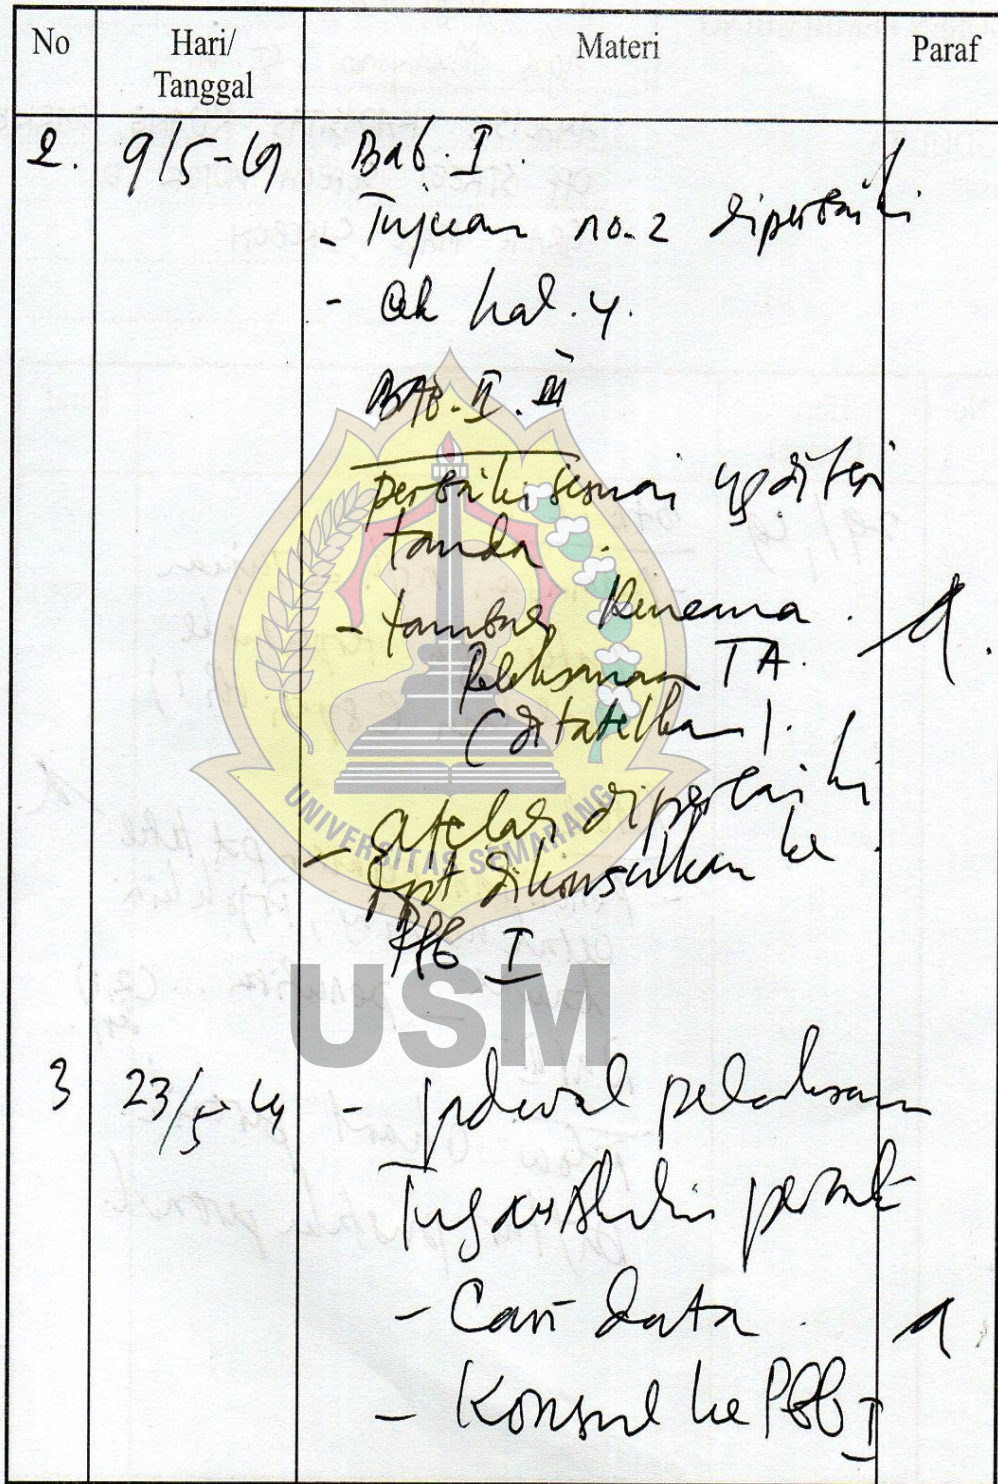 No Hari/ Tanggal Materi Paraf
2. 9/5-19 Bab. I.
- Tujuan no. 2 diperbaiki
- Cek hal. 4.
BAB. II. III
perbaiki sesuai yg diberi
tanda.
- tambah Rencana
Pelaksanaan TA.
(ditabelkan).
- Setelah diperbaiki
dpt dikonsulkan ke
PBB I
UNIVERSITAS SEMARANG
USM
3 23/5-19 - Jadwal pelaksanaan
Tugas Akhir
- Cari data
- Konsul ke PBB I